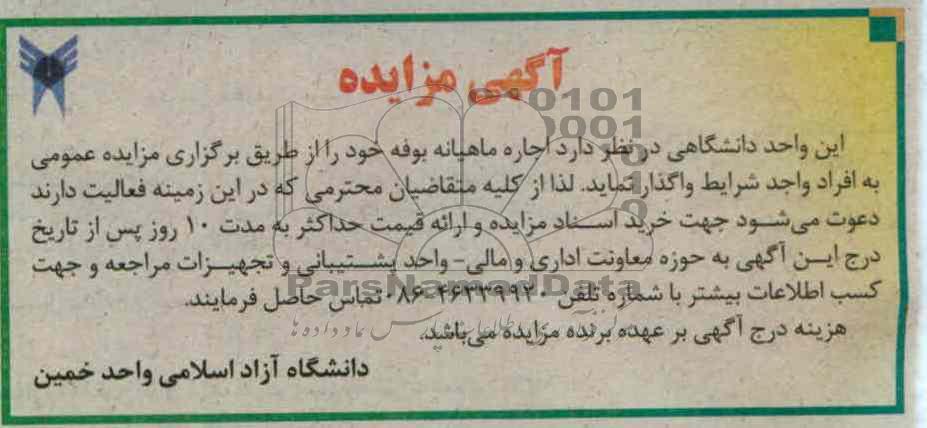 آگهی مزایده
این واحد دانشگاهی در نظر دارد اجاره ماهیانه بوفه خود را از طریق برگزاری مزایده عمومی
به افراد واجد شرایط واگذار نماید. لذا از کلیه متقاضیان محترمی که در این زمینه فعالیت دارند
دعوت می‌شود جهت خرید اسناد مزایده و ارائه قیمت حداکثر به مدت ۱۰ روز پس از تاریخ
درج این آگهی به حوزه معاونت اداری و مالی- واحد پشتیبانی و تجهیزات مراجعه و جهت
کسب اطلاعات بیشتر با شماره تلفن ۰۸۶-۴۶۲۳۹۹۲۰ تماس حاصل فرمایند.
هزینه درج آگهی بر عهده برنده مزایده می‌باشد.
دانشگاه آزاد اسلامی واحد خمین
0101
0001
ParsNamadData